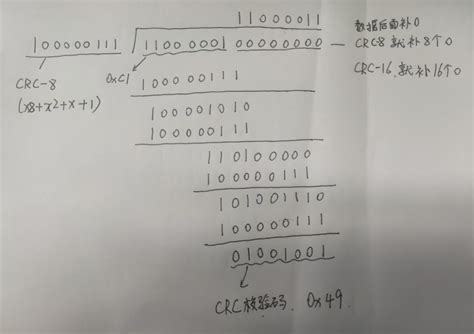 11000011
数据后面补0
100000111
11000001 00000000 — CRC-8 就补8个0
CRC-8
0xC1
100000111
CRC-16 就补16个0
(x8+x2+x+1)
100001010
100000111
110100000
100000111
101001110
100000111
01001001
CRC校验码. 0x49.